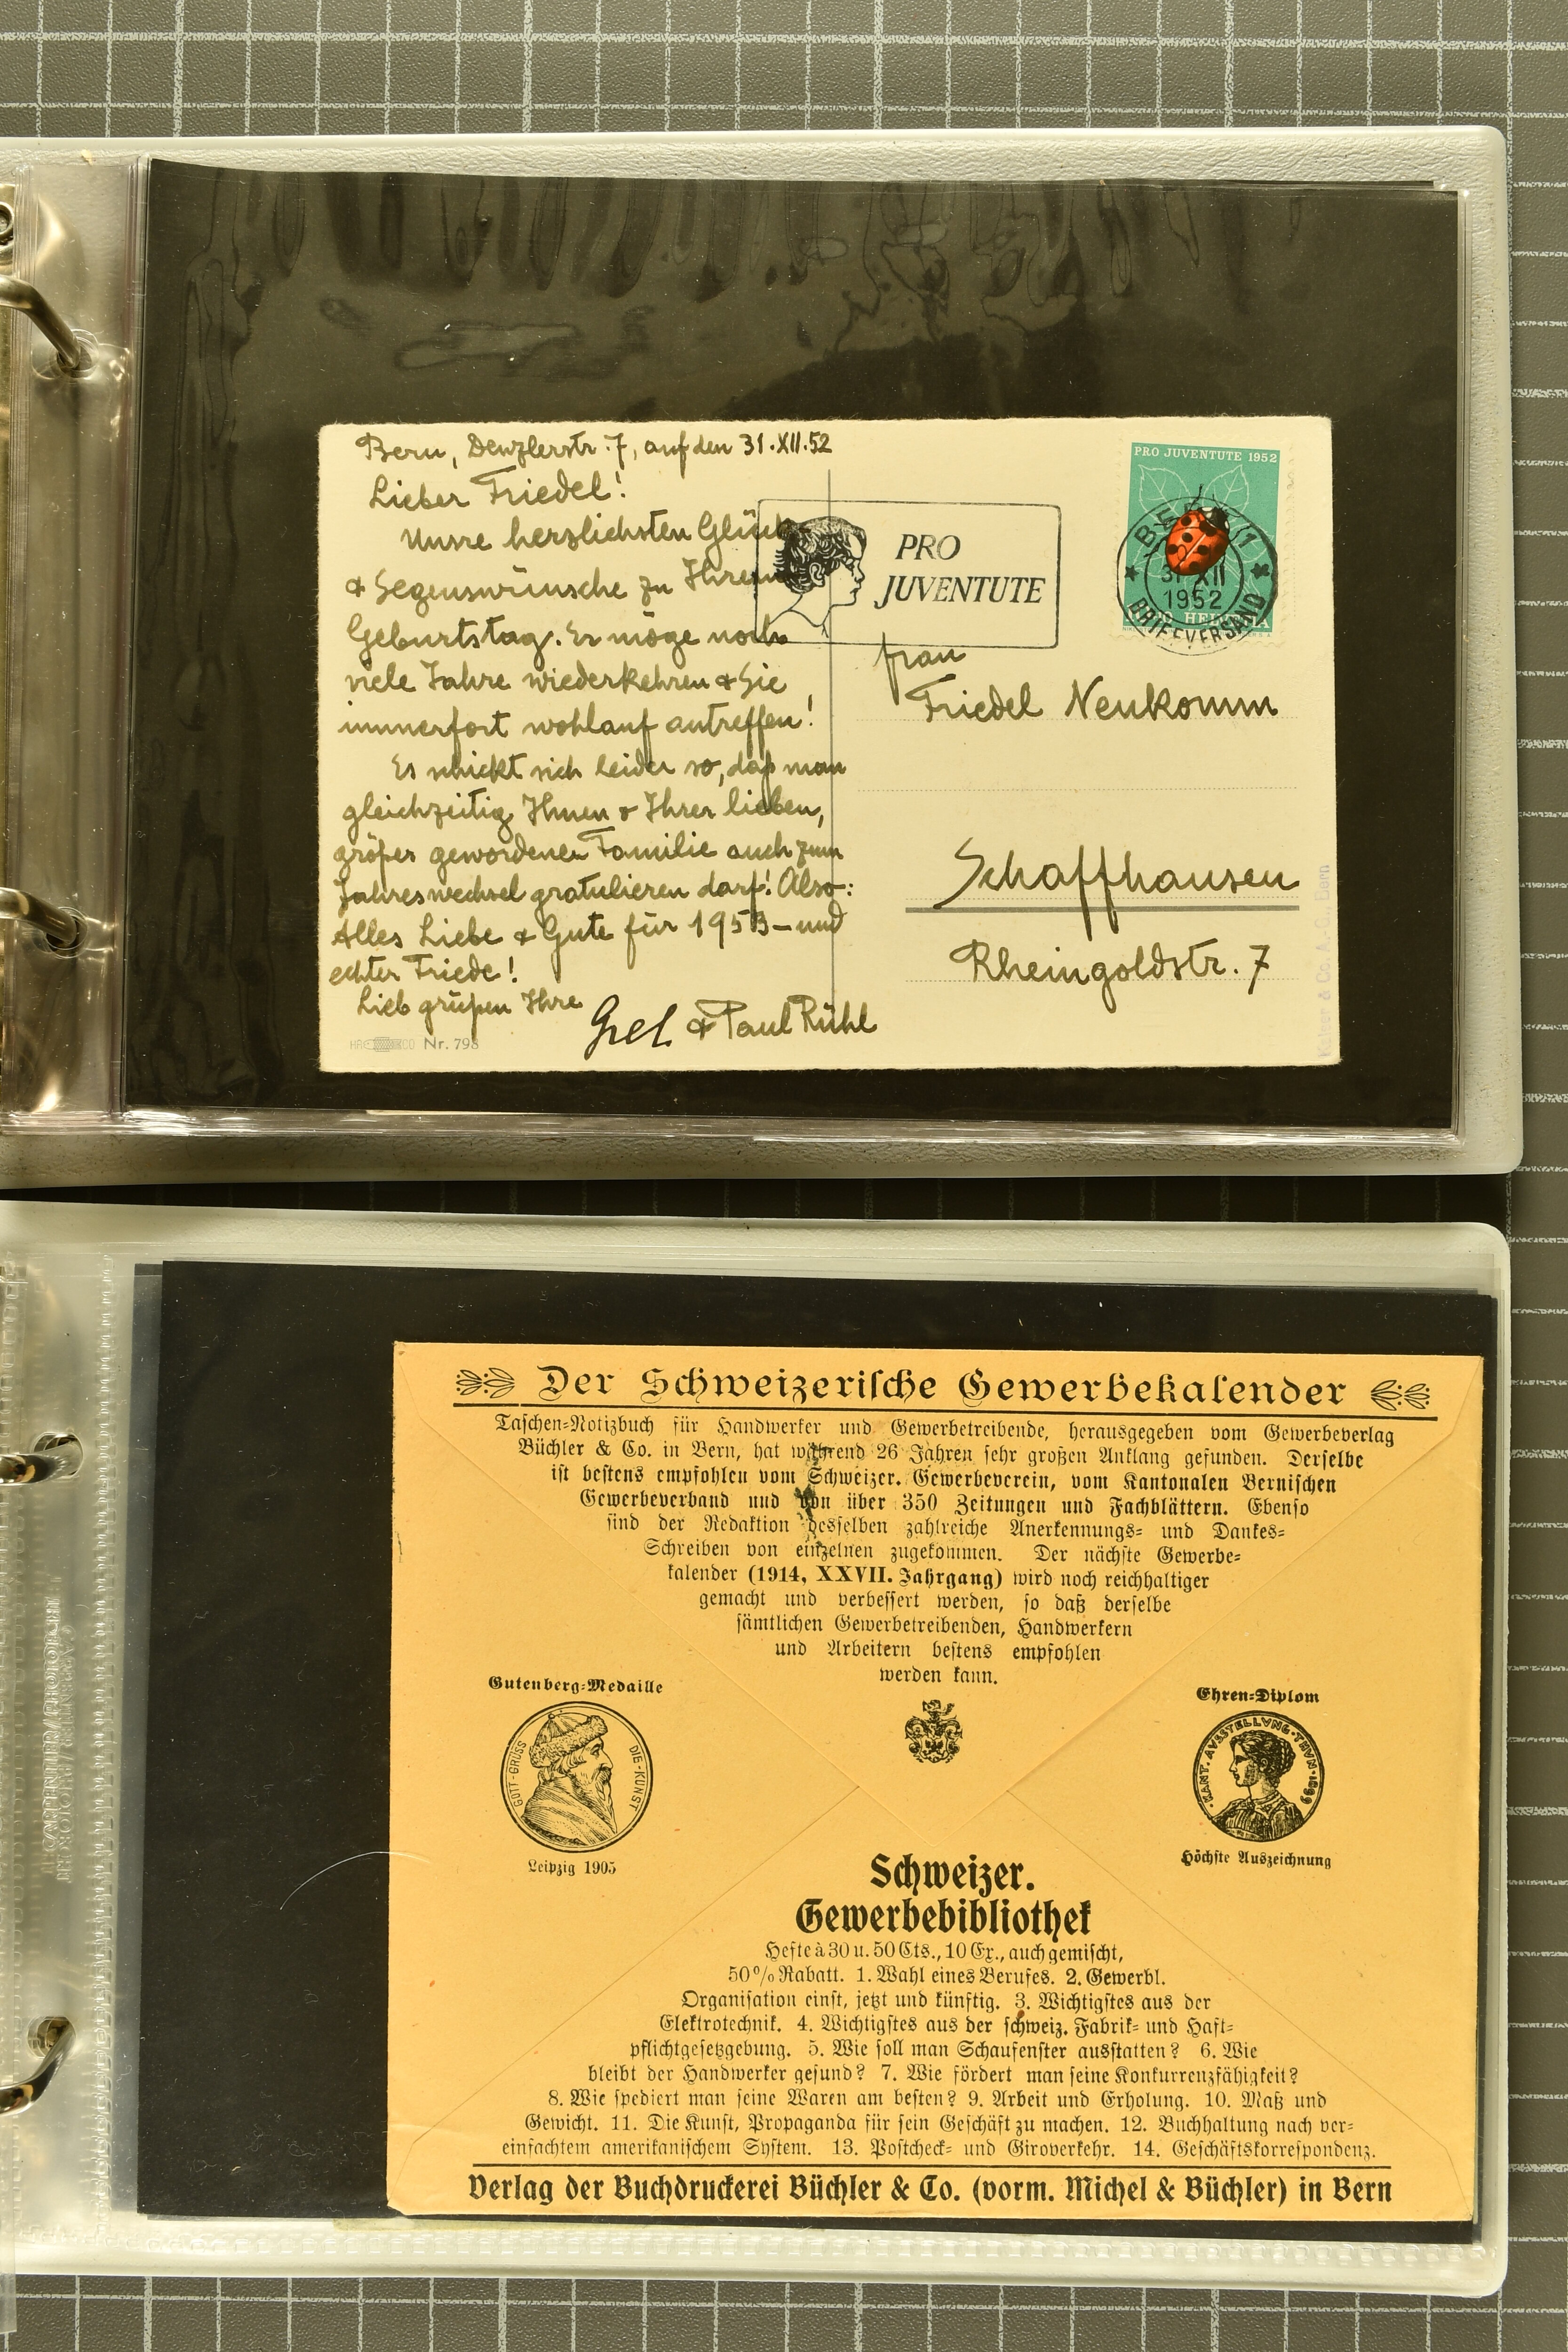 Bern, Denzlerstr. 7, auf den 31.XII.52
Lieber Friedel!
Unsre herzlichsten Glück-
& Segenswünsche zu Ihrem
Geburtstag. Er möge noch
viele Jahre wiederkehren & Sie
immerfort wohlauf antreffen!
Es schickt sich leider so, daß man
gleichzeitig Ihnen & Ihrer lieben,
größer gewordenen Familie auch zum
Jahreswechsel gratulieren darf! Also:
Alles Liebe & Gute für 1953 – und
echter Friede!
Lieb grüßen Ihre
Gret & Paul Rühl
Nr. 798
PRO
JUVENTUTE
PRO JUVENTUTE 1952
BERN 1
31 XII
1952
BRIEFVERSAND
HELVETIA
Frau
Friedel Neukomm
Schaffhausen
Rheingoldstr. 7
Co. A. G., Bern
Der Schweizerische Gewerbekalender
Taschen-Notizbuch für Handwerker und Gewerbetreibende, herausgegeben vom Gewerbeverlag
Büchler & Co. in Bern, hat während 26 Jahren sehr großen Anklang gefunden. Derselbe
ist bestens empfohlen vom Schweizer. Gewerbeverein, vom Kantonalen Bernischen
Gewerbeverband und von über 350 Zeitungen und Fachblättern. Ebenso
sind der Redaktion desselben zahlreiche Anerkennungs- und Dankes-
Schreiben von einzelnen zugekommen. Der nächste Gewerbe-
kalender (1914, XXVII. Jahrgang) wird noch reichhaltiger
gemacht und verbessert werden, so daß derselbe
sämtlichen Gewerbetreibenden, Handwerkern
und Arbeitern bestens empfohlen
werden kann.
Gutenberg-Medaille
GOTT-GRÜSS DIE-KUNST
Leipzig 1905
Ehren-Diplom
KANT. AUSSTELLVNG·THVN·1899
Höchste Auszeichnung
Schweizer.
Gewerbebibliothek
Hefte à 30 u. 50 Cts., 10 Ex., auch gemischt,
50% Rabatt. 1. Wahl eines Berufes. 2. Gewerbl.
Organisation einst, jetzt und künftig. 3. Wichtigstes aus der
Elektrotechnik. 4. Wichtigstes aus der schweiz. Fabrik- und Haft-
pflichtgesetzgebung. 5. Wie soll man Schaufenster ausstatten? 6. Wie
bleibt der Handwerker gesund? 7. Wie fördert man seine Konkurrenzfähigkeit?
8. Wie spediert man seine Waren am besten? 9. Arbeit und Erholung. 10. Maß und
Gewicht. 11. Die Kunst, Propaganda für sein Geschäft zu machen. 12. Buchhaltung nach ver-
einfachtem amerikanischem System. 13. Postcheck- und Giroverkehr. 14. Geschäftskorrespondenz.
Verlag der Buchdruckerei Büchler & Co. (vorm. Michel & Büchler) in Bern